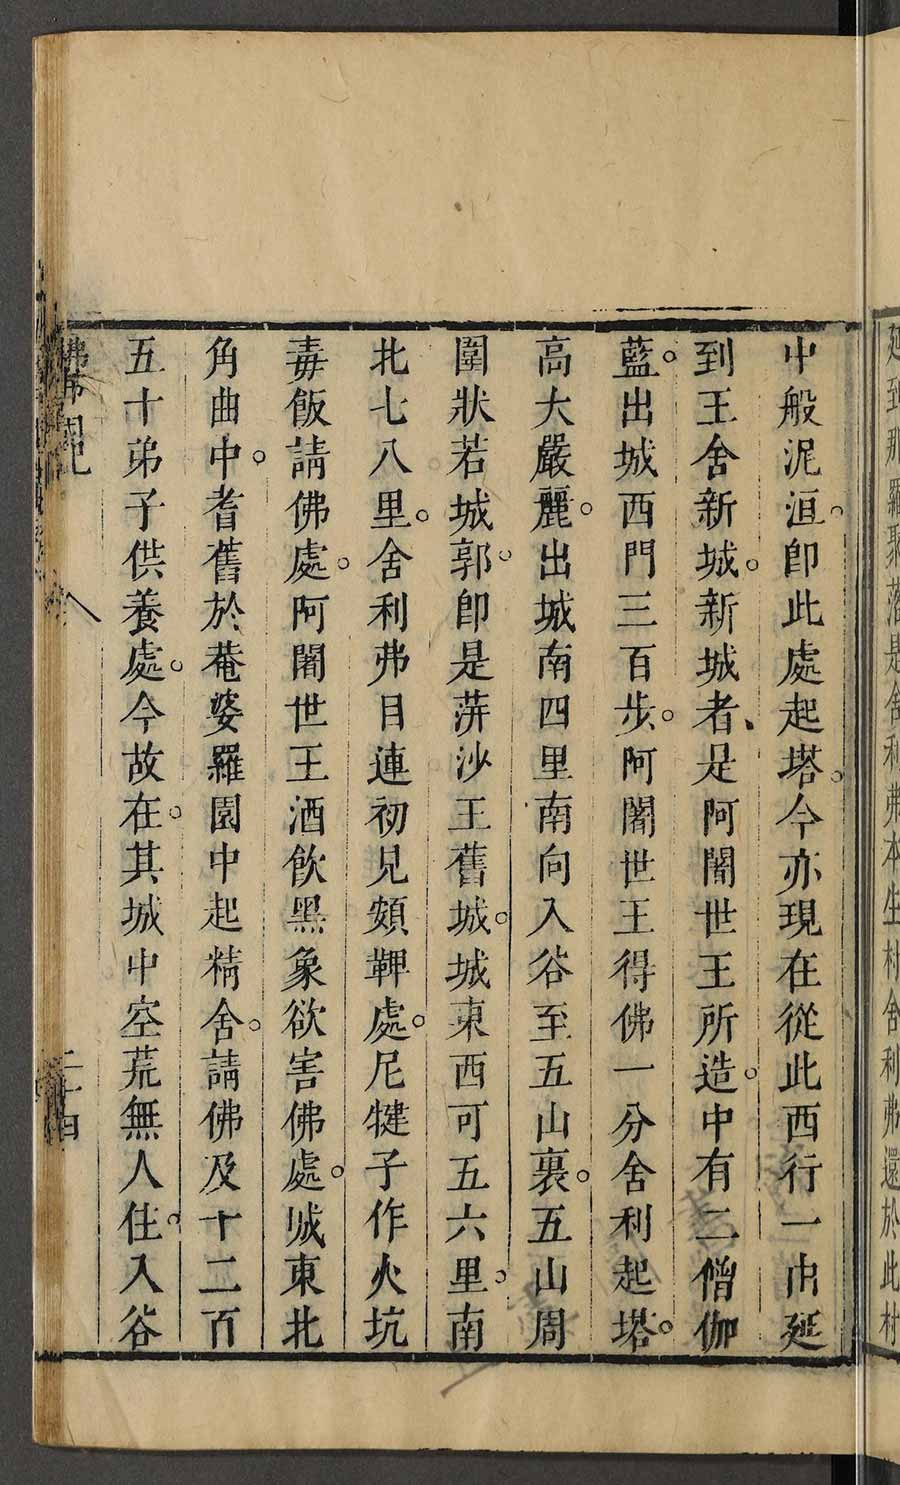 延到那羅聚落是舍利弗本生村舍利弗還於此村
中般泥洹。卽此處起塔。今亦現在從此西行一由延
到王舍新城。新城者、是阿闍世王所造。中有二僧伽
藍。出城西門三百步。阿闍世王得佛一分舍利起塔。
高大嚴麗。出城南四里南向入谷至五山裏。五山周
圍狀若城郭。卽是蓱沙王舊城。城東西可五六里。南
北七八里。舍利弗目連初見頞鞞處。尼犍子作火坑
毒飯請佛處。阿闍世王酒飲黑象欲害佛處。城東北
角曲中。耆舊於菴婆羅園中起精舍。請佛及十二百
五十弟子供養處。今故在。其城中空荒無人住。入谷
佛 國記 二十四